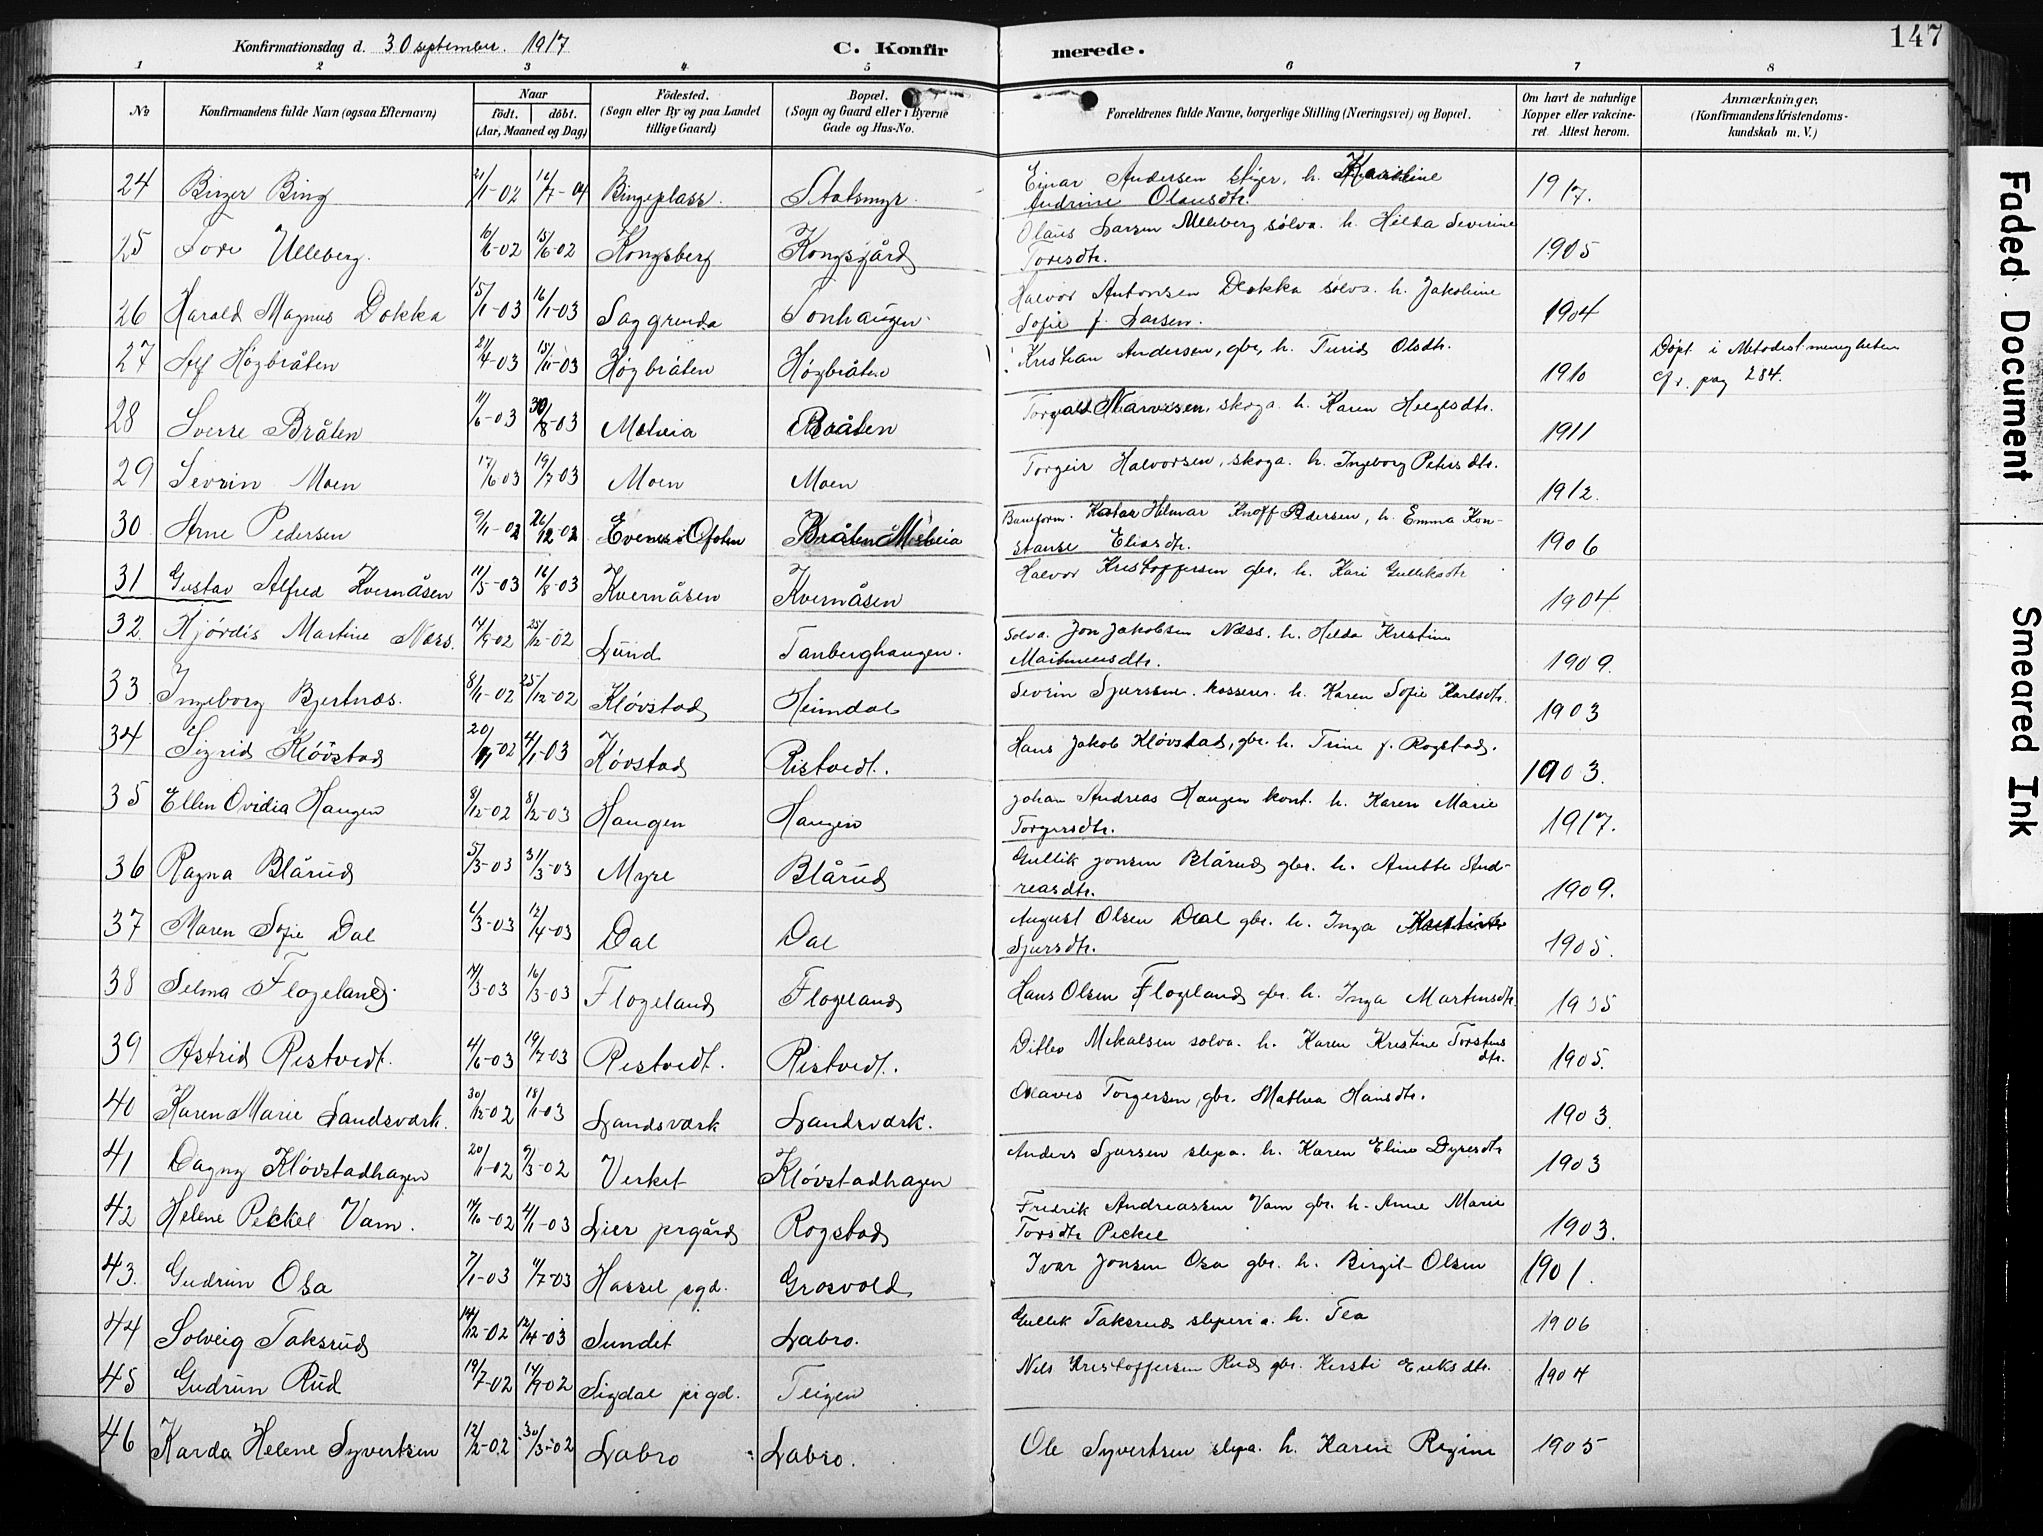 Konfirmationsdag d. 30 september. 1917 C. Konfirmerede. 147
1 2 3 4 5 6 7 8
No Konfirmandens fulde Navn (ogsaa Efternavn) Naar født. døbt. (Aar, Maaned og Dag) Fødested. (Sogn eller By og paa Landet tillige Gaard) Bopæl. (Sogn og Gaard eller i Byerne Gade og Hus-No. Forældrenes fulde Navne, borgerlige Stilling (Næringsvei) og Bopæl. Om havt de naturlige Kopper eller vakcineret. Attest herom. Anmærkninger. (Konfirmandens Kristendomskundskab m. V.)
24 Birger Bing 21/1-02 Bingeplass. Stotsmyr. Einar Andersen stiger, h. Karoline 1917.
Andrine Olausdtr.
25 Tore Ulleberg. 10/6-02 15/6-02 Kongsberg Kongsgård Olaus Larsen Ulleberg sølva. h. Hilda Severine 1905
Toresdtr.
26 Harald Magnus Dokka 15/1-03 16/1-03 Saggrenda Tonhaugen Halvor Antonsen Dokka sølva. h. Jakobine 1904
Sofie f. Larsen.
27 Alf Høgbråten 21/4-03 15/11-03 Høgbråten Høgbråten Kristian Andersen, gbr, h. Turid Olsdtr. 1910 Døpt i Metodistmenigheten
cfr. pag 284.
28 Sverre Bråten 11/6-03 30/8-03 Meheia Bråten Torvald Narvesen, skoga. h. Karen Helgesdtr. 1911
29 Sevrin Moen 17/6 03 19/7 03 Moen Moen Torgeir Halvorsen, skoga. h. Ingeborg Petersdtr. 1912.
30 Arne Pedersen 9/11-02 26/12-02 Evenes i Ofoten Bråten Meheia Baneform. Hilmar Knoff Pedersen, h. Emma Kon- 1906
stanse Eliasdtr.
31 Gustav Alfred Kvernåsen 11/5-03 16/8-03 Kvernåsen Kvernåsen Halvor Kristoffersen gbr. h. Kari Gulliksdtr 1904
32. Hjördis Martine Næss. 14/9-02 25/12-02 Lund Tanberghaugen. Sølva. Jon Jakobsen Næss. h. Hilda Kristine 1909.
33 Ingeborg Bjertnæs. 8/11-02 25/12-02 Kløvstad Heimdal Sevrin Sjursen. kasserer. h. Karen Sofie Karlsdtr. 1903
34 Sigrid Kløvstad 20/11-02 4/1-03 Kløvstad Ristvedt. Hans Jakob Kløvstad, gbr. h. Trine f. Rogstad. 1903.
35 Ellen Ovidia Haugen 8/12-02 8/2-03 Haugen Haugen Johan Andreas Haugen kont. h. Karen Marie 1917.
Torgersdtr.
36 Ragna Blårud 5/3-03 31/3-03 Myre Blårud Gullik Jonsen Blårud gbr. h. Anette And- 1909.
reasdtr.
37 Maren Sofie Dal 6/3-03 12/4-03 Dal Dal August Olsen Dal gbr. h. Inga 1905.
Sjursdtr.
38 Selma Flogeland. 4/3-03 16/3-03 Flogeland Flogeland Hans Olsen Flogeland gbr. h. Inga Martinsdtr. 1905
39 Astrid Ristvedt. 4/6-03 19/7-03 Ristvedt. Ristvedt. Ditlev Mikalsen sølva. h. Karen Kristine Torstens 1905.
dtr.
40 Karen Marie Landsværk. 30/12-02 18/1-03 Landsværk Landsværk. Olaves Torgersen, gbr. Mathea Hansdtr. 1903.
41 Dagny Kløvstadhagen 20/1-02 9/3-02 Verket Kløvstadhagen Anders Sjursen slepa. h. Karen Eline Dyresdtr 1903
42 Helene Peckel Vam. 14/10-02 4/1-03 Lier prgård Rogstad Fredrik Andreassen Vam gbr. h. Anne Marie 1903.
Torsdtr Peckel
43. Gudrun Osa 7/1-03 4/7-03 Hassel sgd. Grosvold Ivar Jonsen Osa gbr. h. Birgit Olsen 1901.
44 Solveig Taksrud 14/12-02 12/4-03 Sundet Labro. Gullik Taksrud sliperia. h. Tea 1906
45 Gudrun Rud 19/7-02 14/9-02 Sigdal prgd. Teigen Nels Kristoffersen Rud gbr. Kirsti Eriksdtr. 1904
46 Karda Helene Syvertsen 12/2-02 30/3-02 Labro Labro. Ole Syvertsen slipa. h. Karen Regine 1905
Faded Document
Smeared Ink